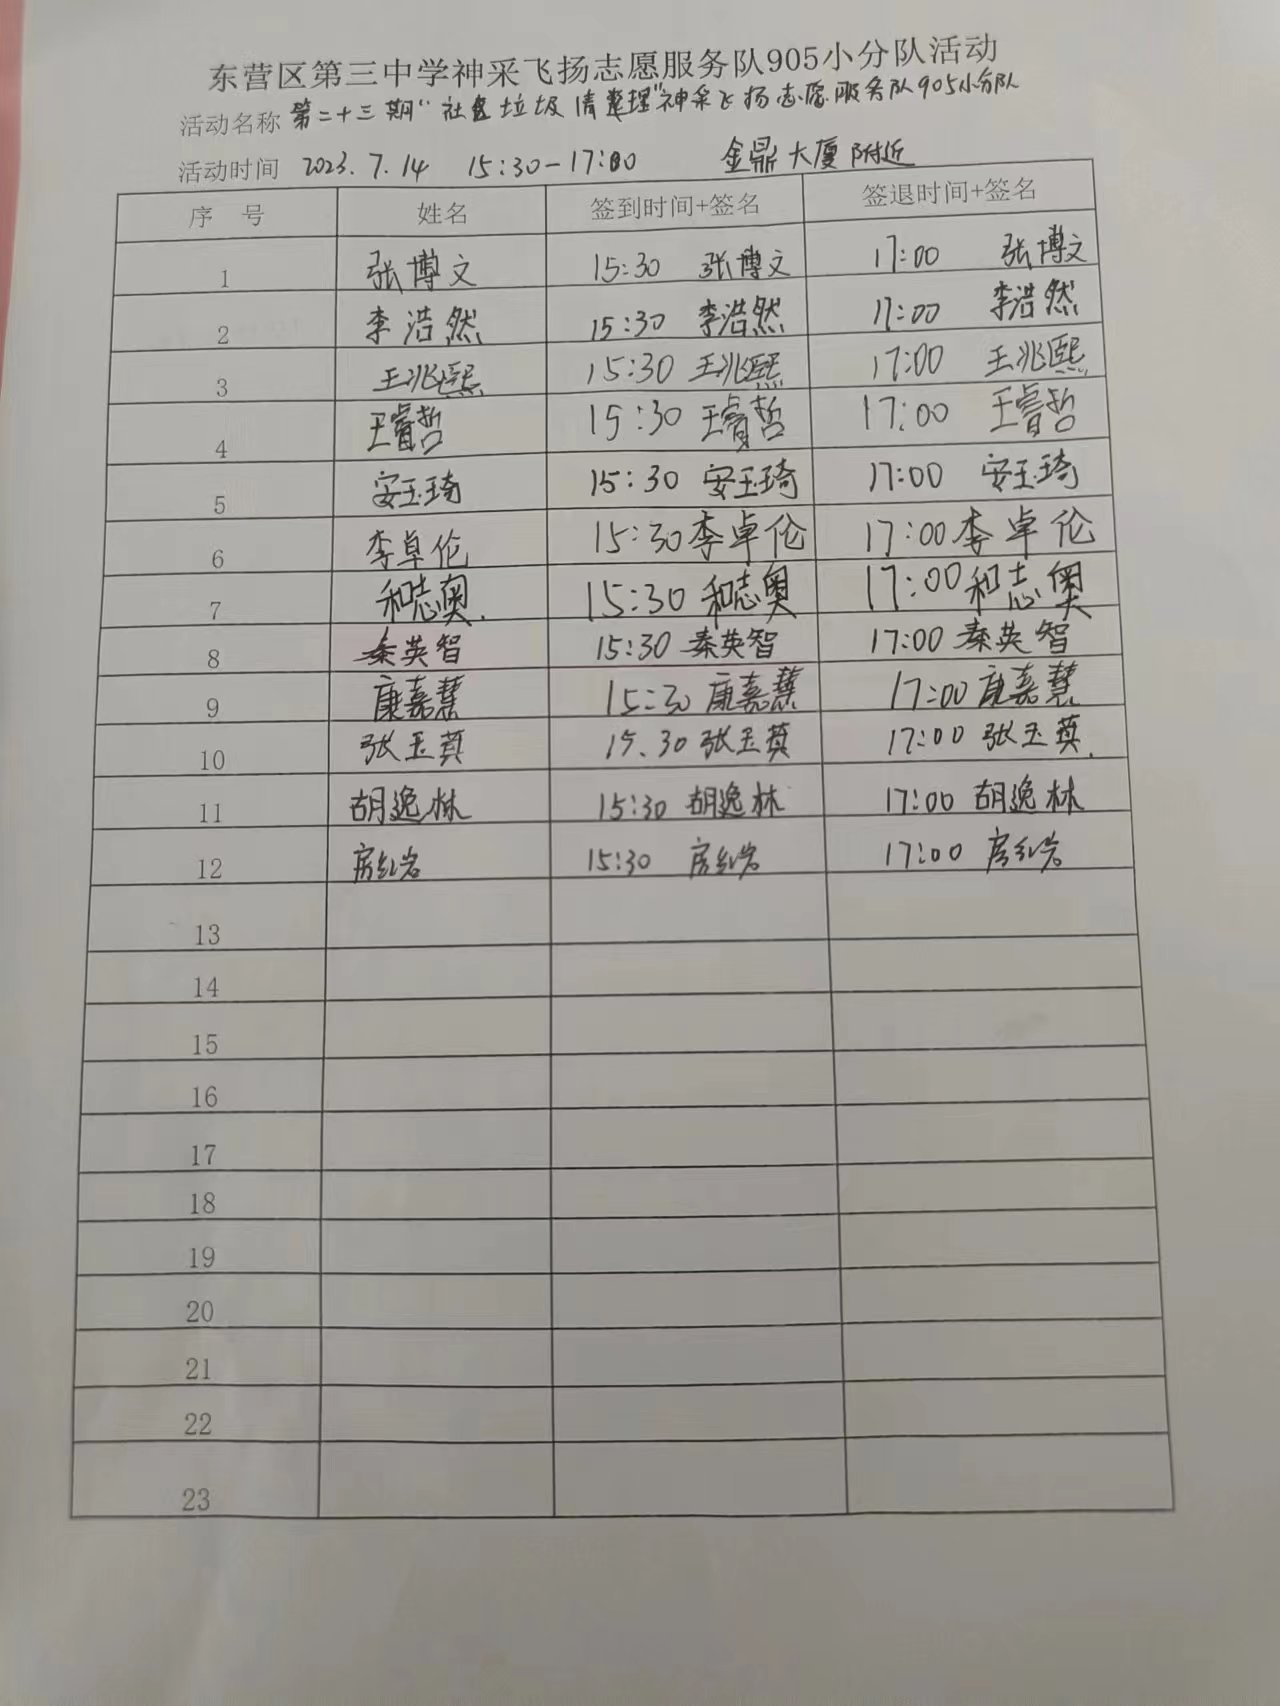 东营区第三中学神采飞扬志愿服务队905小分队活动
活动名称 第二十三期“社区垃圾清整理”神采飞扬志愿服务队905小分队
活动时间 2023.7.14 15:30-17:00 金鼎大厦附近
序 号 姓名 签到时间+签名 签退时间+签名
1 张博文 15:30 张博文 17:00 张博文
2 李浩然 15:30 李浩然 17:00 李浩然
3 王兆熙 15:30 王兆熙 17:00 王兆熙
4 王睿哲 15:30 王睿哲 17:00 王睿哲
5 安玉琦 15:30 安玉琦 17:00 安玉琦
6 李卓伦 15:30 李卓伦 17:00 李卓伦
7 和志奥. 15:30 和志奥 17:00 和志奥
8 秦英智 15:30 秦英智 17:00 秦英智
9 康嘉慧 15:30 康嘉慧 17:00 康嘉慧
10 张玉 15.30 张玉 17:00 张玉
11 胡逸林 15:30 胡逸林 17:00 胡逸林
12 房红岩 15:30 房红岩 17:00 房红岩
13
14
15
16
17
18
19
20
21
22
23